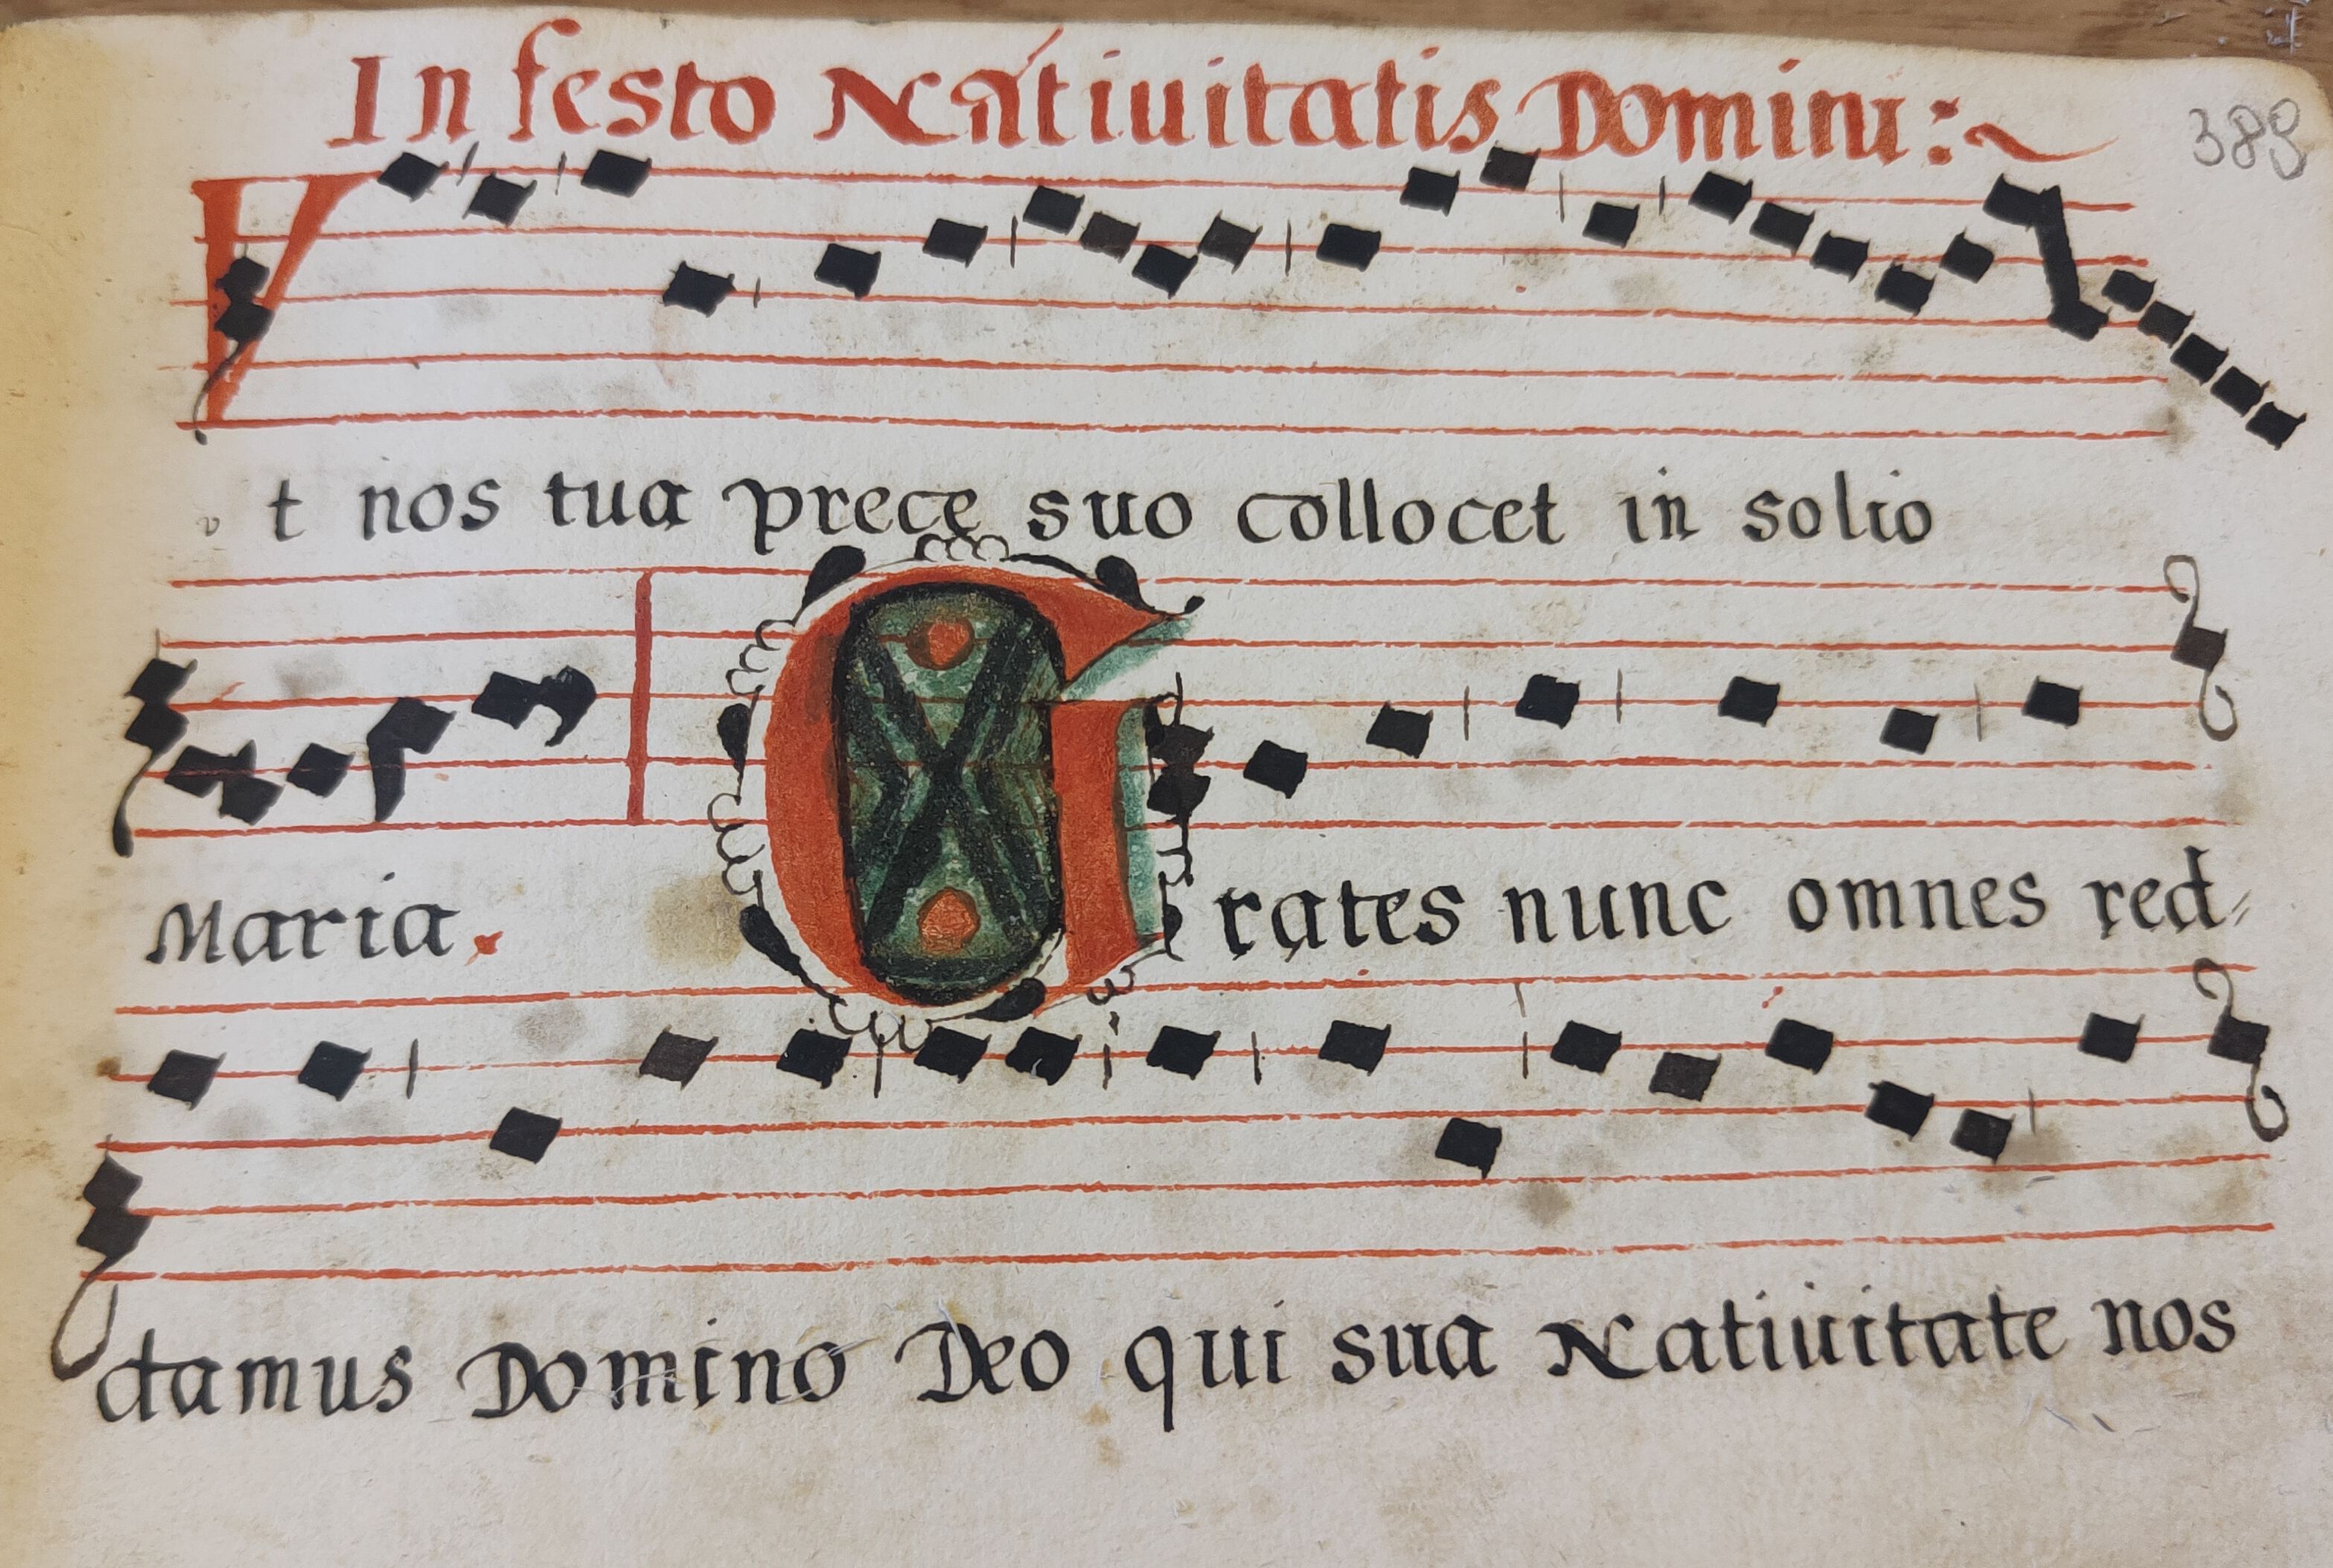 In festo Natiuitatis Domini: 389
Vt nos tua prece suo collocet in solio
Maria. Grates nunc omnes red-
damus Domino Deo qui sua Natiuitate nos